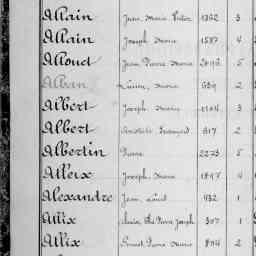 Allain Jean Marie Victor 1362 3
Allain Joseph Marie 1587 4
Alloud Jean Pierre Marie 5
Alban Marie 2
Albert Joseph Marie 3
Albert 817 2
Albertin Pierre 2273 5
Alleix Joseph Marie 1897 4
Alexandre Jean Louis 932 1
Allix Pierre Joseph 307 1
Allix Ernest Pierre Marie 894 2